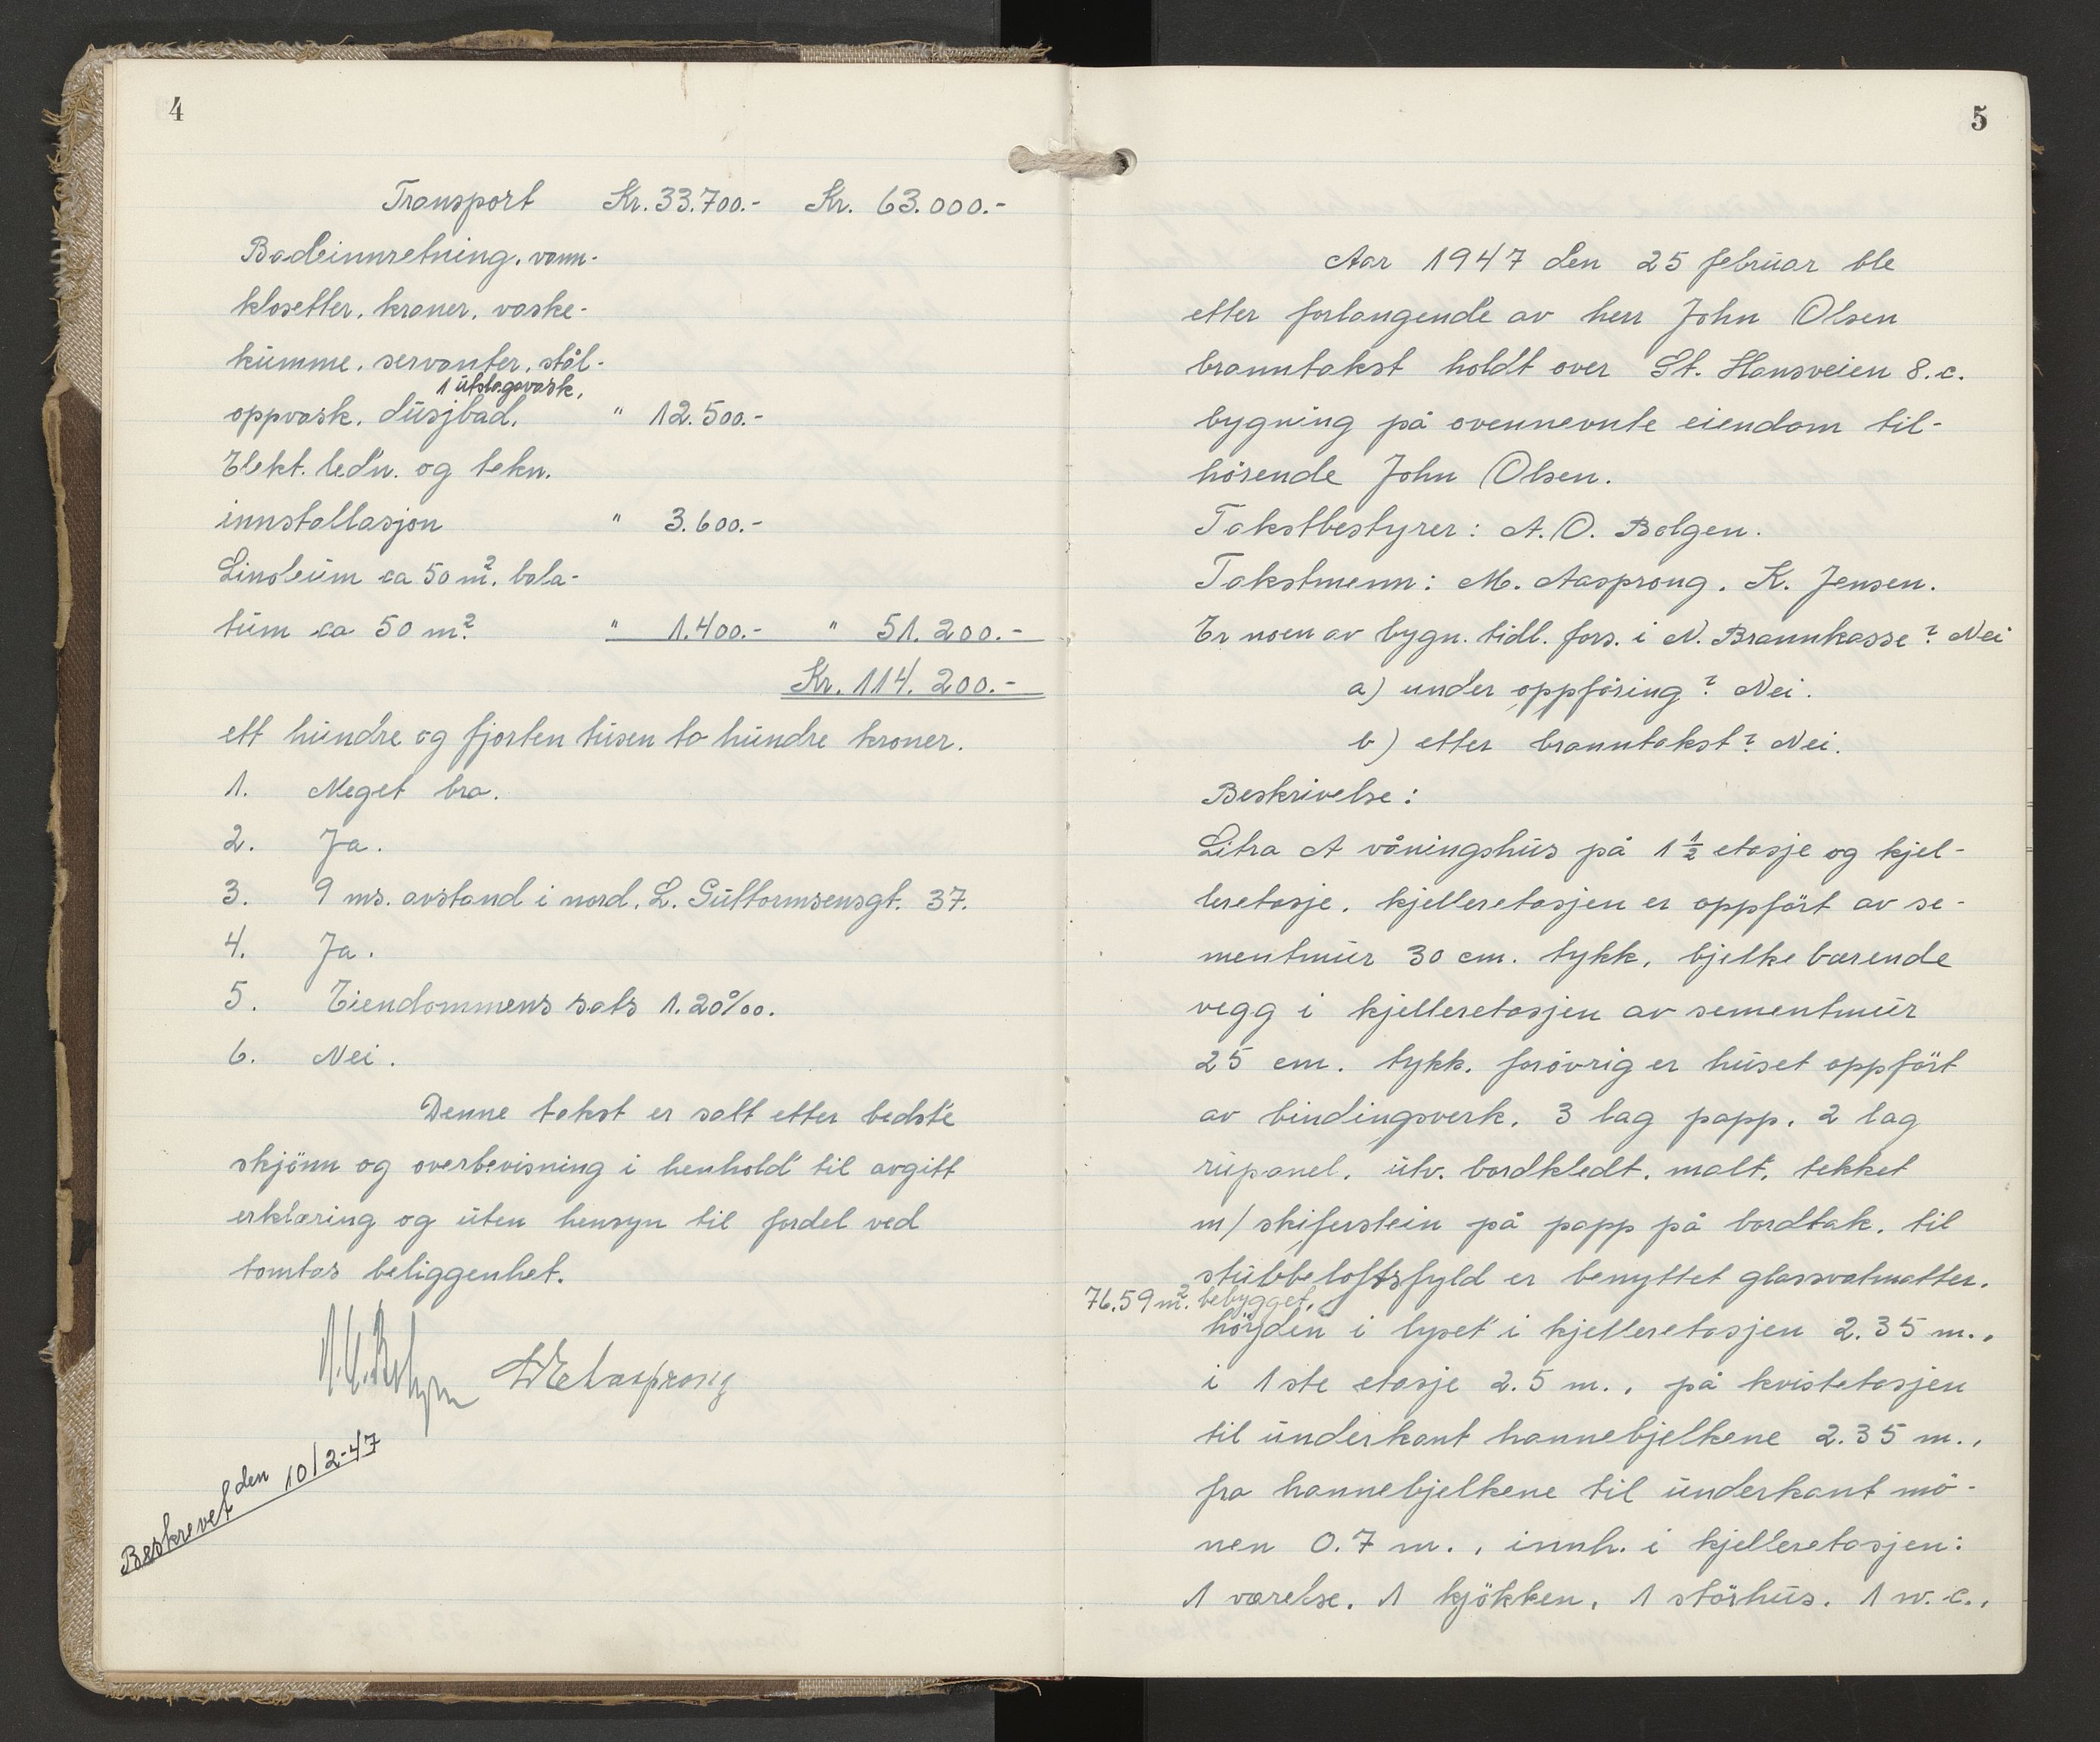 4
Transport Kr. 33.700.- Kr. 63.000.-
Badeinnretning, vann-
klosetter, kraner, vaske-
kumme, servanter, stål-
1 utslagsvask,
oppvask, dusjbad, " 12.500.-
Elekt. ledn. og tekn.
innstallasjon " 3.600.-
Linoleum ca 50 m². bala-
tum ca 50 m². " 1.400.- " 51.200.-
Kr. 114.200.-
ett hundre og fjorten tusen to hundre kroner.
1. Meget bra.
2. Ja.
3. 9 ms. avstand i nord. L. Guttormsensgt. 37.
4. Ja.
5. Eiendommens sats 1.20‰.
6. Nei.
Denne takst er satt etter bedste
skjönn og overbevisning i henhold til avgitt
erklæring og uten hensyn til fordel ved
tomtas beliggenhet.
Beskrevet den 10/2-47
5
Aar 1947 den 25 februar ble
etter forlangende av herr John Olsen
branntakst holdt over St. Hansveien 8.c.
bygning på ovennevnte eiendom til-
hörende John Olsen.
Takstbestyrer: A. O. Bolgen.
Takstmenn: M. Aasprong, K. Jensen.
Er noen av bygn. tidl. fors. i N. Brannkasse? Nei
a) under oppföring? Nei.
b) etter branntakst? Nei.
Beskrivelse:
Litra A våningshus på 1 ½ etasje og kjel-
leretasje, kjelleretasjen er oppfört av se-
mentmur 30 cm. tykk, bjelke bærende
vegg i kjelleretasjen av sementmur
25 cm. tykk. forövrig er huset oppfört
av bindingsverk, 3 lag papp, 2 lag
rupanel, utv. bordkledt, malt, tekket
m/ skiferstein på papp på bordtak, til
stubbeloftsfyld er benyttet glassvatmatter.
76.59 m². bebygget,
höyden i lyset i kjelleretasjen 2.35 m.,
i 1ste etasje 2.5 m., på kvistetasjen
til underkant hannebjelkene 2.35 m.,
fra hannebjelkene til underkant mö-
nen 0.7 m., innh. i kjelleretasjen:
1 værelse, 1 kjökken, 1 störhus, 1 w.c.,